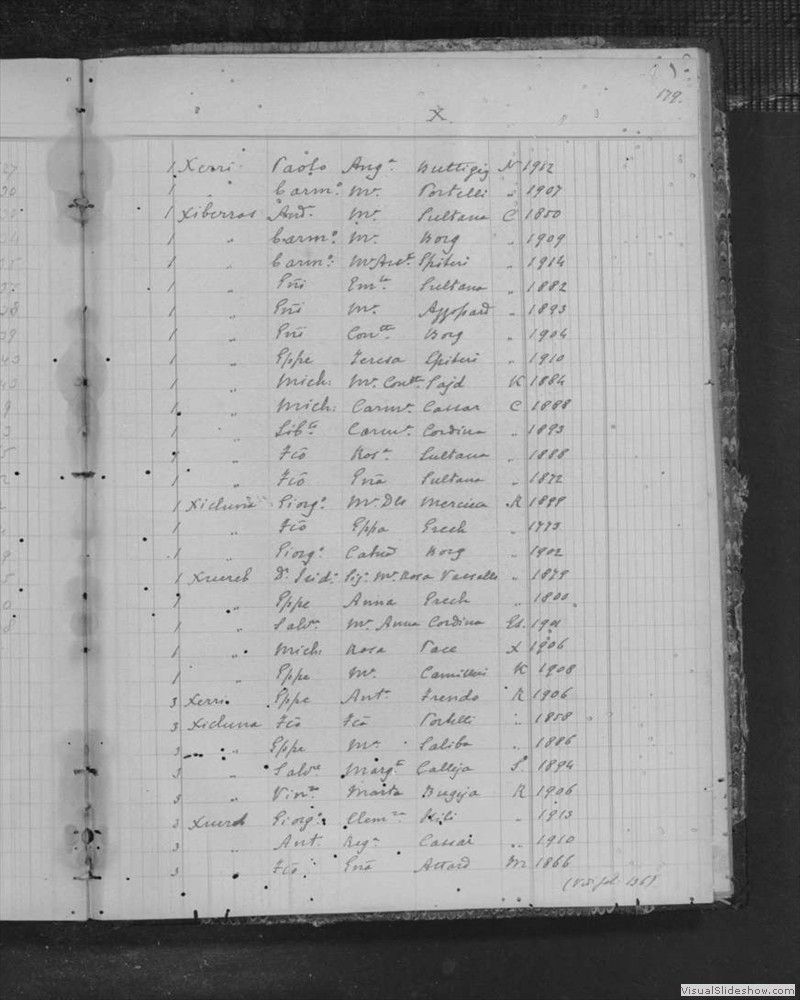 179.
X.
1 Xerri Paolo Ang.ª Buttigieg N 1912
1 " Carm.º M.ª Portelli " 1907
1 Xiberras And. M.ª Sultana C 1850
1 " Carm.º M.ª Borg " 1909
1 " Carm.º M.ª Spiteri " 1914
1 " Gni Sultana " 1882
1 " Gni M.ª Appap " 1893
1 " Gni Con.tta Borg " 1904
1 " Gppe Teresa Spiteri " 1910
1 " Mich: M.ª Con.tta Sajd K 1884
1 " Mich: Carm.ª Cassar C 1888
1 " Carm.ª Cordina " 1893
1 " Fco Ros.ª Sultana " 1888
1 " Fco Gna Sultana " 1872
1 Xicluna Giorg.º M.ª Mercieca R
1 " Fco Gppa Grech " 1773
1 " Giorg.º Borg " 1902
1 Xuereb M.ª Rosa Vassallo " 1879
1 " Gppe Anna Grech " 1800
1 " Salv.e M.ª Anna Cordina
1 " Mich: Rosa Pace X 1906
1 " Gppe M.ª Camilleri K 1908
3 Xerri Gppe Ant. Trendo R 1906
3 Xicluna Fco Fca Portelli " 1858
3 " Gppe M.ª Saliba " 1886
3 " Salv.e Marg.ta Calleja S. 1894
3 " Vin.zo Marta Bugeja R 1906
3 Xuereb Giorg.º Clem.za " 1913
3 " Ant. Reg.ª Cassar " 1910
3 " Fco Gna Attard M 1866
(Vid. fol. 136)
VisualSlideshow.com